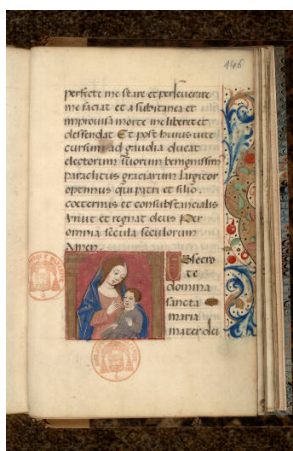 146
perfecte me stare et perseverare
me faciat et a subitanea et
improvisa morte me liberet et
deffendat Et post huius vite
cursum ad gaudia ducat
electorum suorum benignissim
paraclitus graciarum largitor
optimus qui patri et filio
coeternus et consubstancialis
vivit et regnat deus Per
omnia secula seculorum
Amen
Obsecro
te
domina
sancta
maria
mater dei